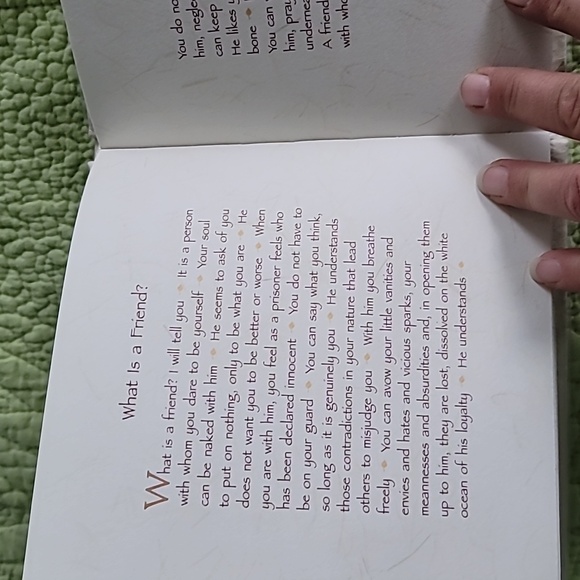 What Is a Friend?
What is a friend? I will tell you It is a person
with whom you dare to be yourself Your soul
can be naked with him He seems to ask of you
to put on nothing, only to be what you are He
does not want you to be better or worse When
you are with him, you feel as a prisoner feels who
has been declared innocent You do not have to
be on your guard You can say what you think,
so long as it is genuinely you He understands
those contradictions in your nature that lead
others to misjudge you With him you breathe
freely You can avow your little vanities and
envies and hates and vicious sparks, your
meannesses and absurdities and, in opening them
up to him, they are lost, dissolved on the white
ocean of his loyalty He understands
You do no
him, negle
can keep
He likes y
bone
You can
him, pra
underne
A friend
with who